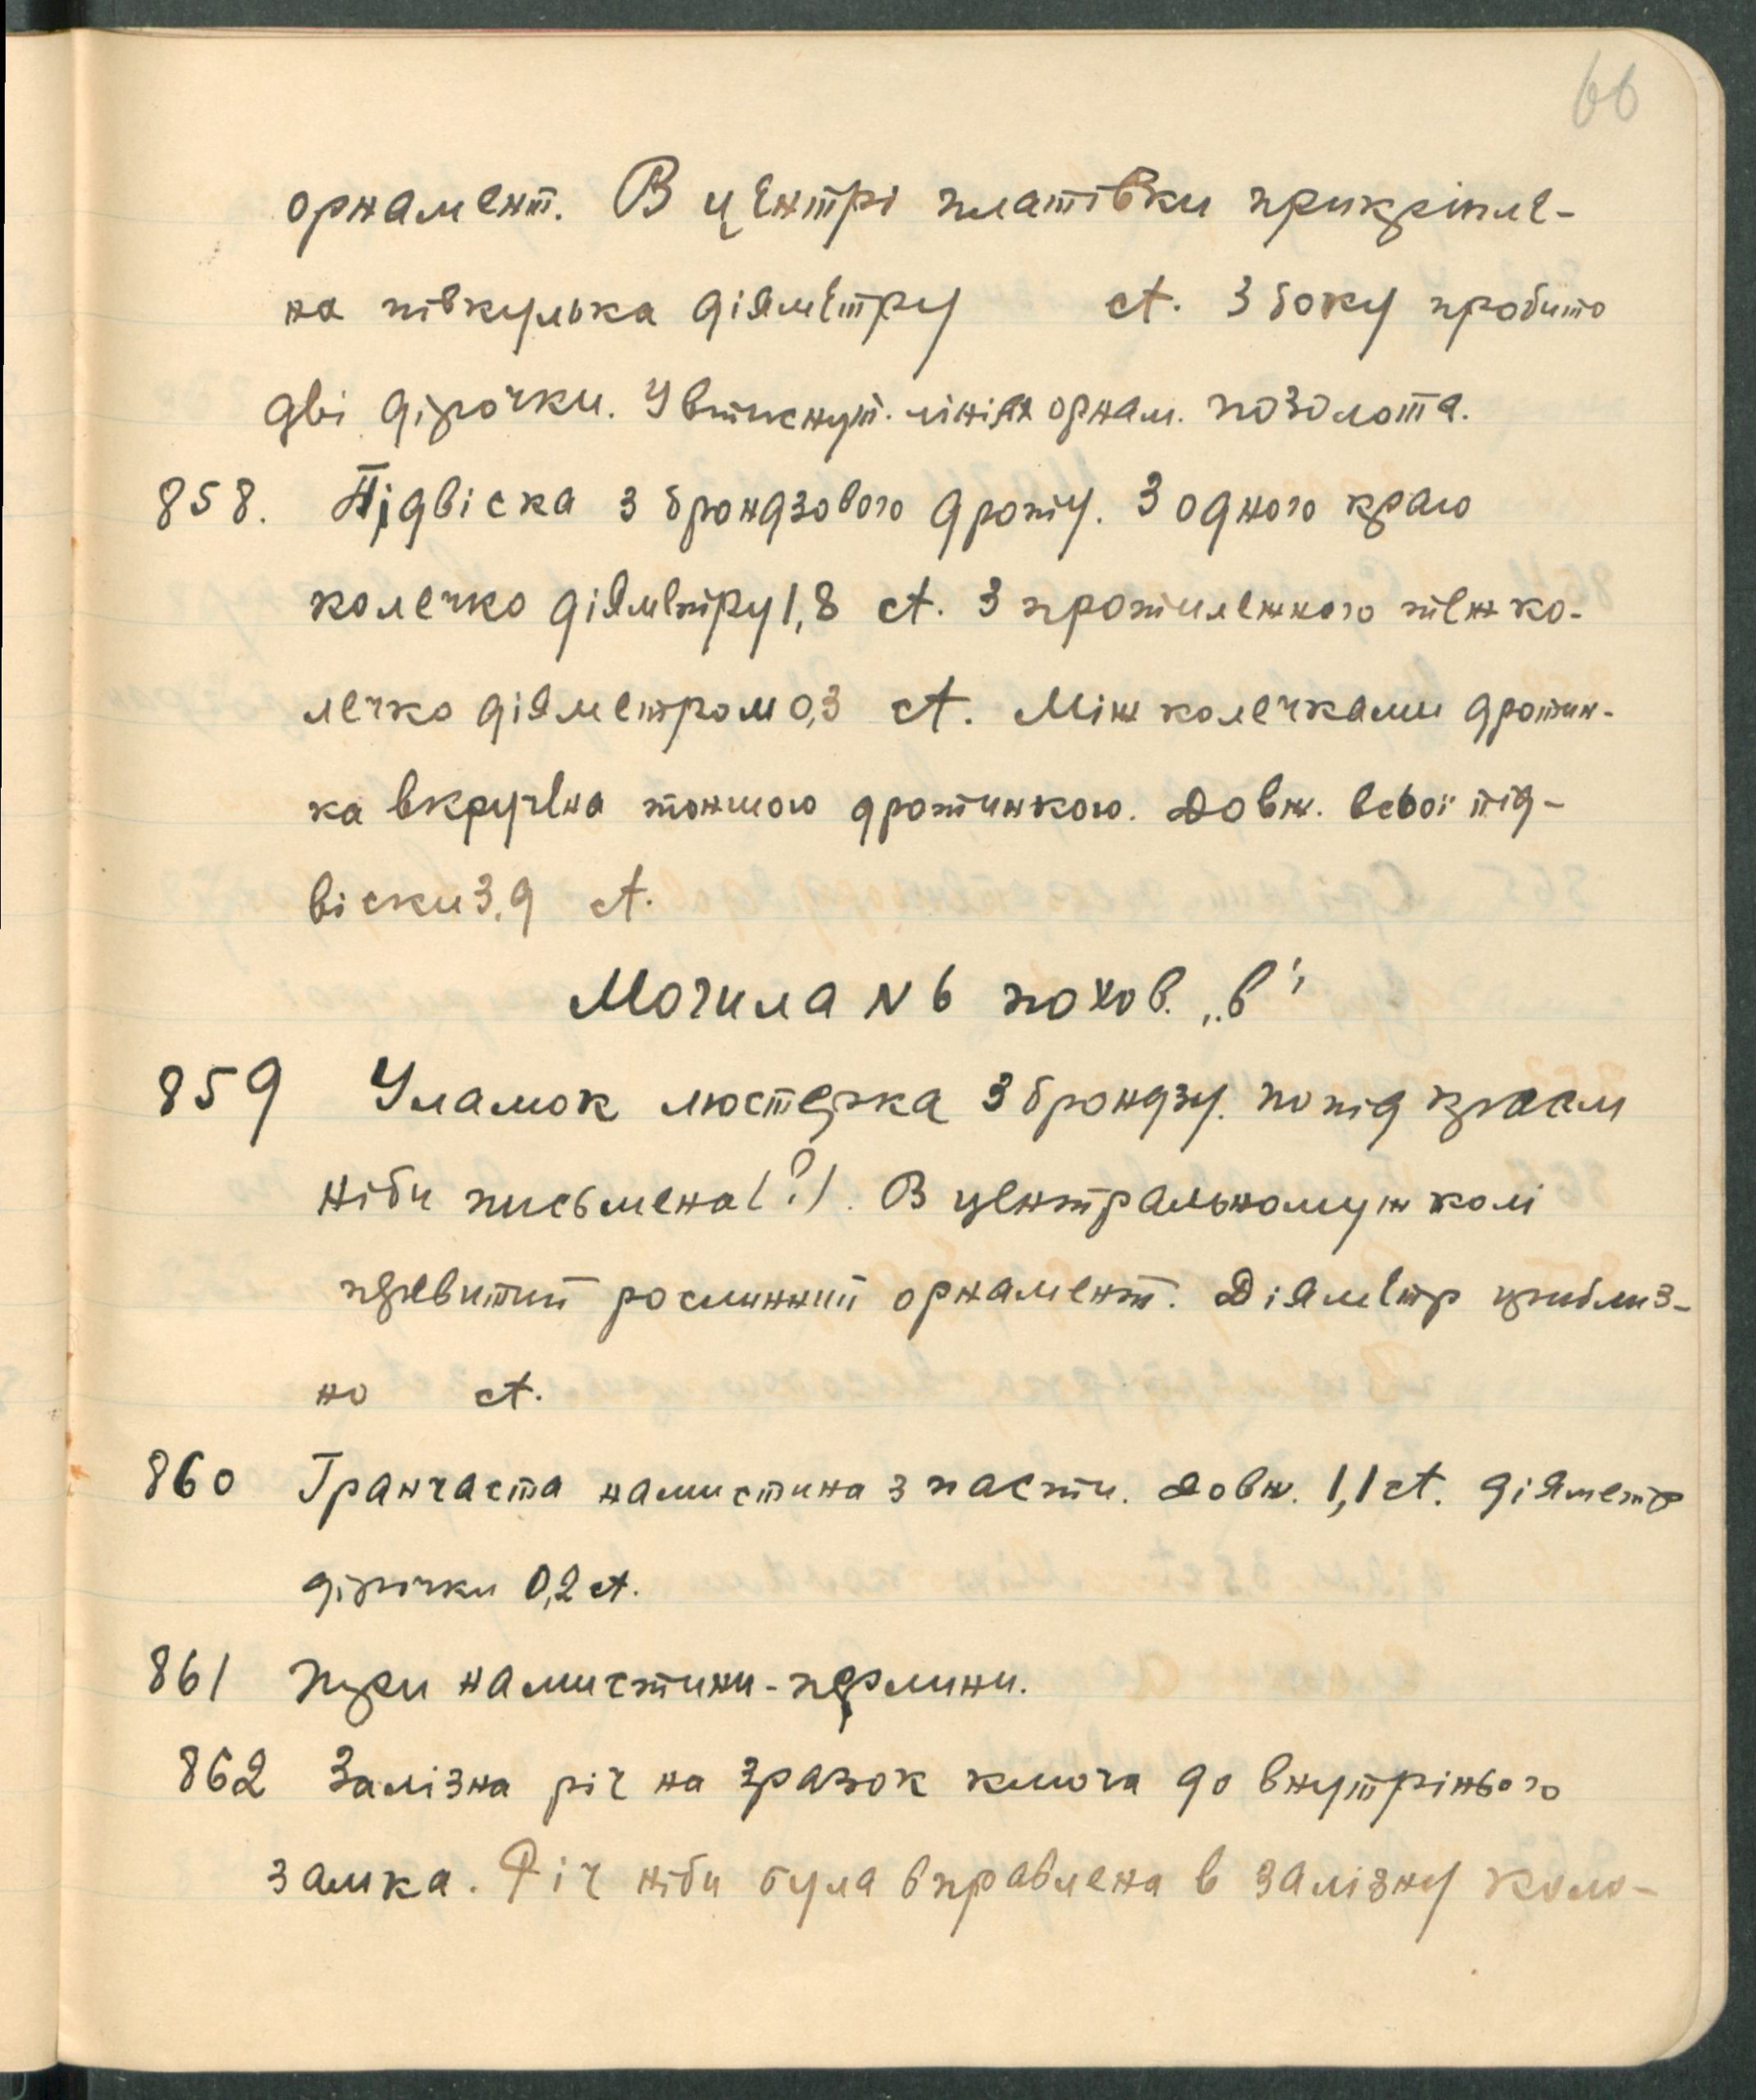 66
орнамент. В центрі платівки прикріпле-
на півкулька діяметру ст. З боку пробито
дві дірочки. У втиснут. лініях орнам. позолота.
858. Підвіска з брондзового дроту. З одного краю
колечко діяметру 1,8 ст. З протилежного теж ко-
лечко діяметром 0,3 ст. Між колечками дротин-
ка вкручена тоншою дротинкою. Довж. всьої під-
віски 3,9 ст.
Могила N 6 похов. „в"
859 Уламок люстерка з брондзу. попід краєм
ніби письмена (?). В центральному ж колі
перевитий рослинний орнамент. Діяметр приблиз-
но ст.
860 Гранчаста намистина з пасти. довж. 1,1 ст. діяметр
дірочки 0,2 ст.
861 Три намистини-перлини.
862 Залізна річ на зразок ключа до внутрінього
замка. Річ ніби була вправлена в залізну коло-